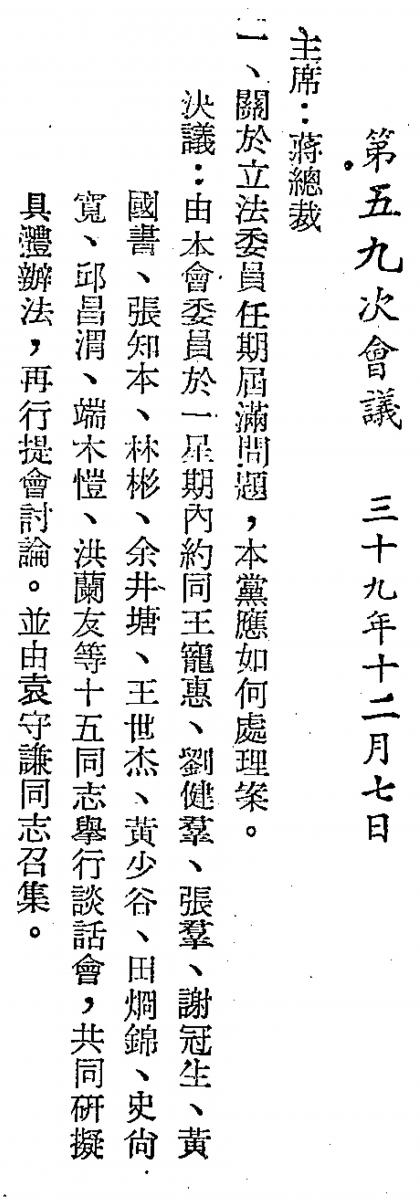 第五九次會議　三十九年十二月七日
主席：蔣總裁
一、關於立法委員任期屆滿問題，本黨應如何處理案。
決議：由本會委員於一星期內約同王寵惠、劉健羣、張羣、謝冠生、黃
國書、張知本、林彬、余井塘、王世杰、黃少谷、田烱錦、史尙
寬、邱昌渭、端木愷、洪蘭友等十五同志舉行談話會，共同研擬
具體辦法，再行提會討論。並由袁守謙同志召集。